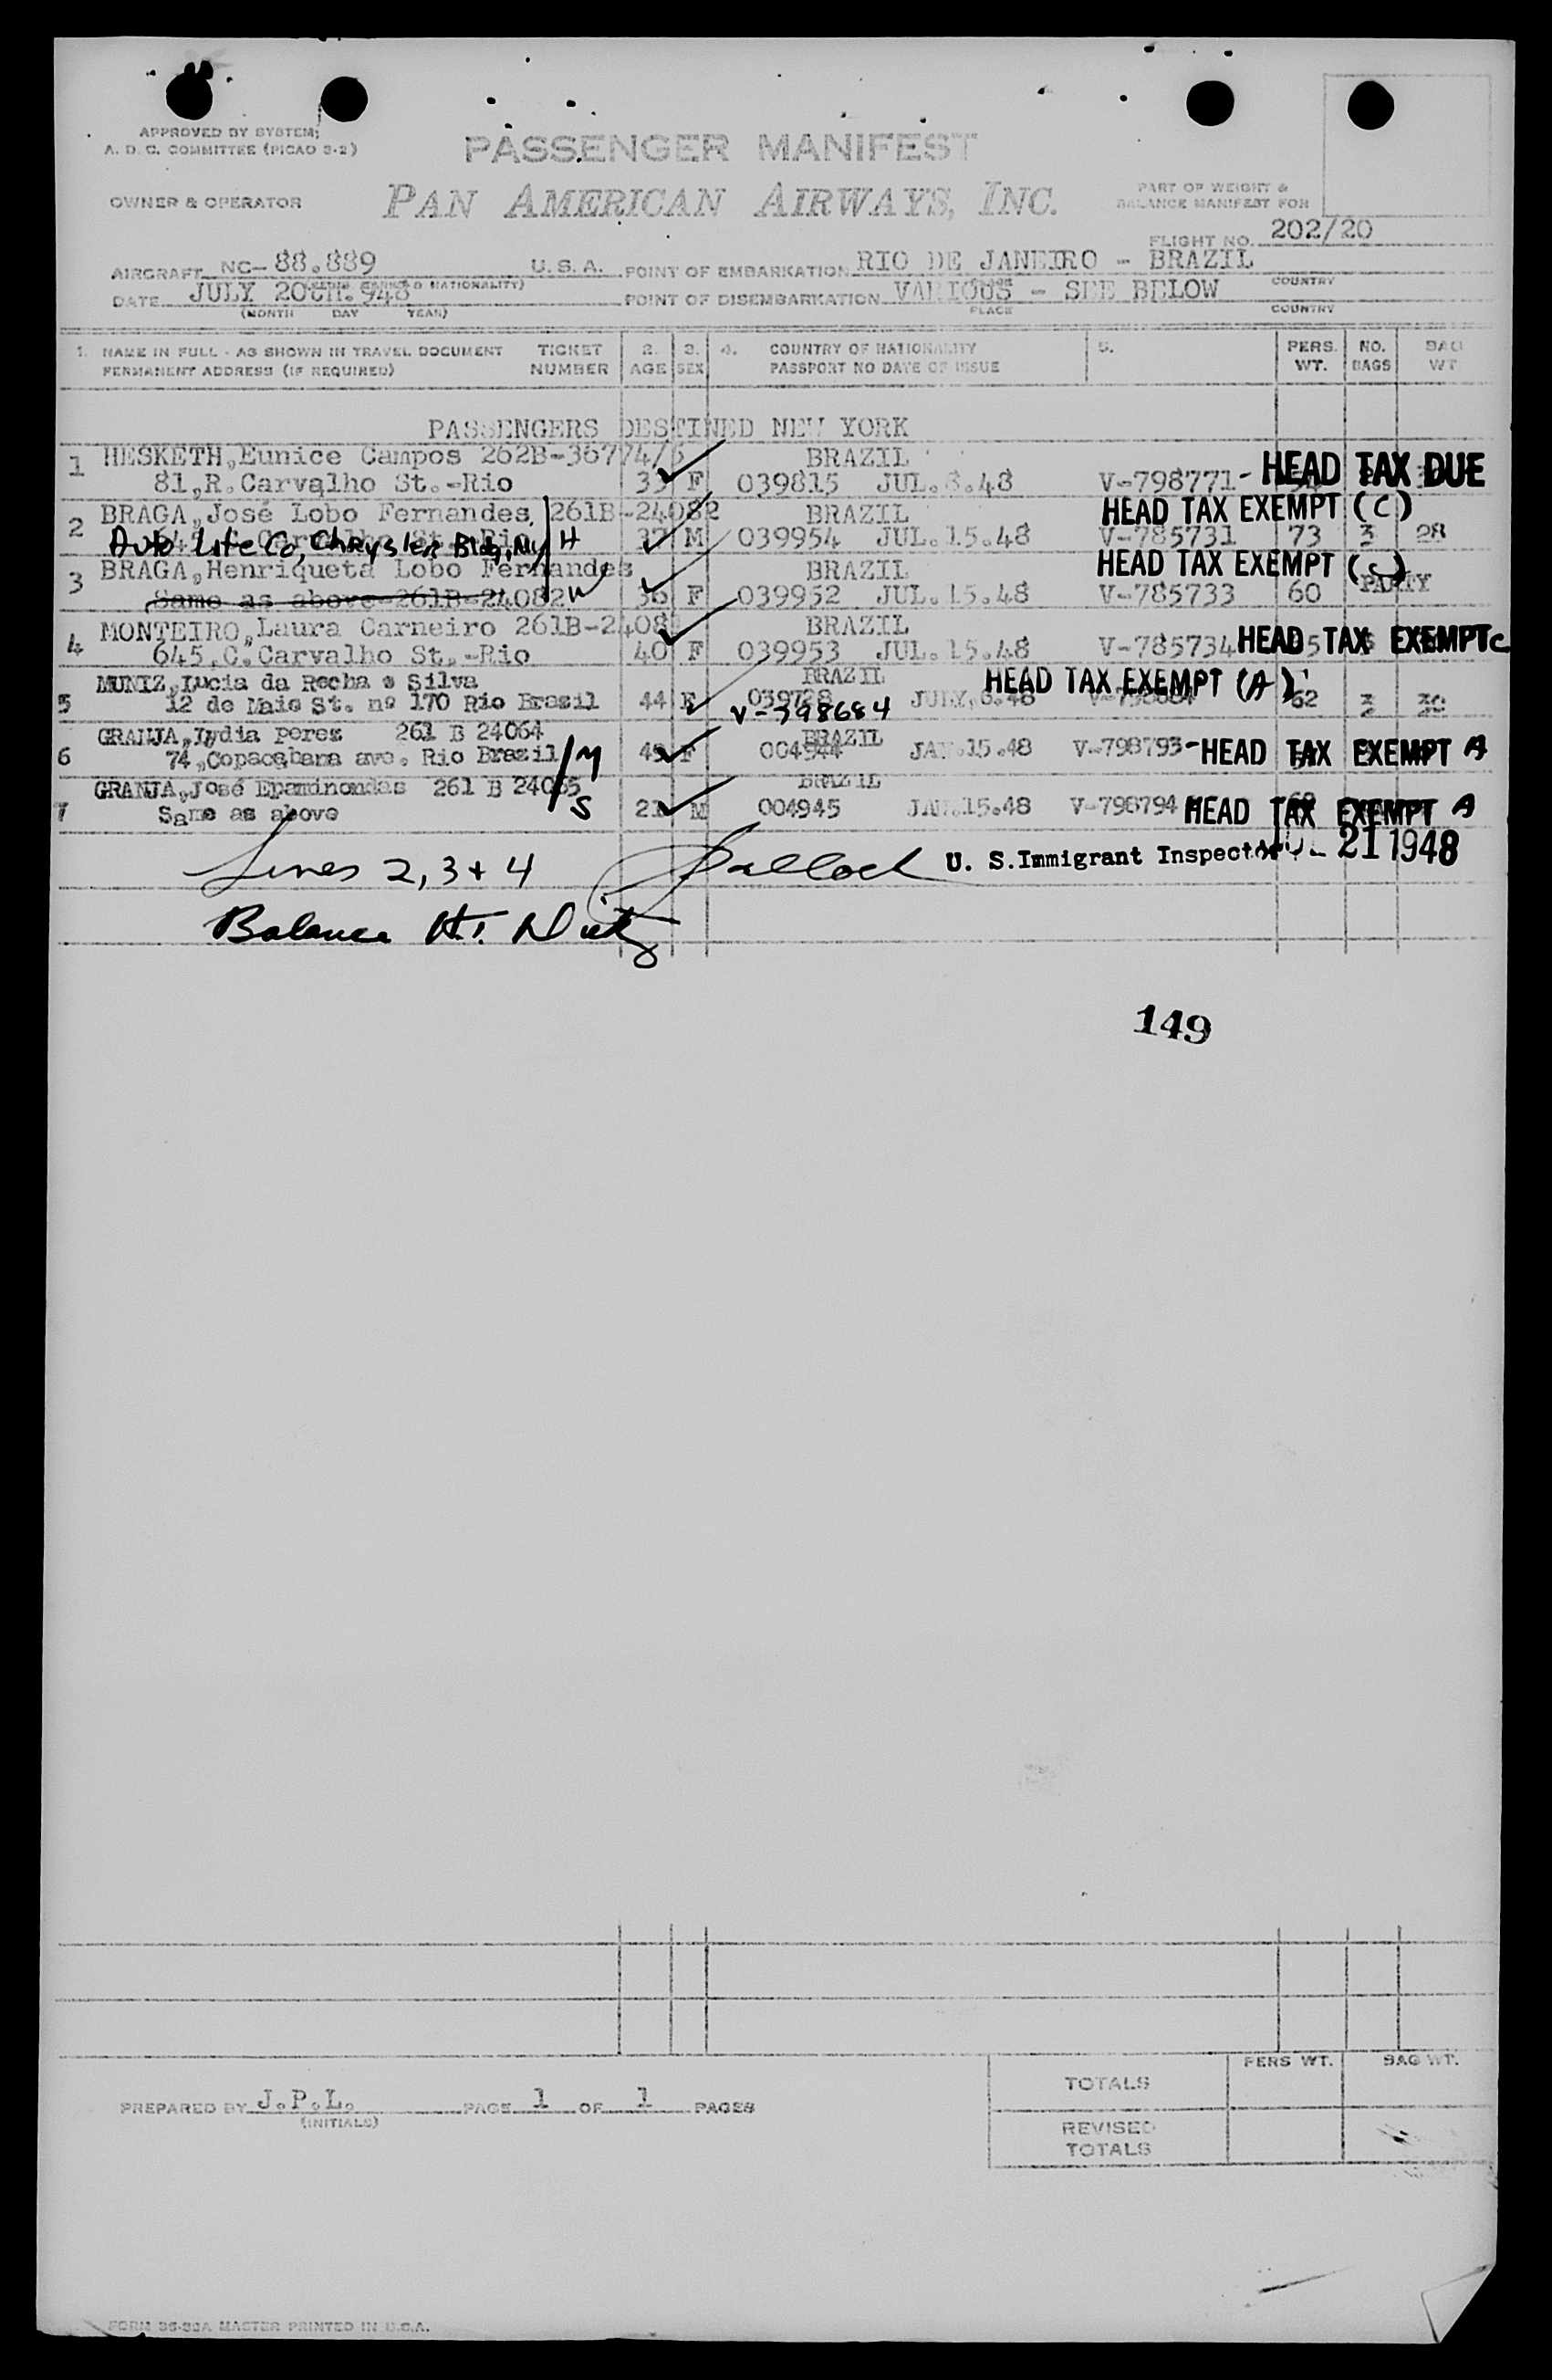 APPROVED BY SYSTEM;
A. D. C. COMMITTEE (PICAO 3-2)
PASSENGER MANIFEST
OWNER & OPERATOR
PAN AMERICAN AIRWAYS, INC.
PART OF WEIGHT &
BALANCE MANIFEST FOR
FLIGHT NO. 202/20
AIRCRAFT NC- 88.889 U. S. A. POINT OF EMBARKATION RIO DE JANEIRO - BRAZIL
NATIONALITY) COUNTRY
DATE JULY 20th. 948 POINT OF DISEMBARKATION VARIOUS - SEE BELOW
(MONTH DAY YEAR) PLACE COUNTRY
1. NAME IN FULL - AS SHOWN IN TRAVEL DOCUMENT TICKET 2. 3. 4. COUNTRY OF NATIONALITY 5. PERS. NO. BAG
PERMANENT ADDRESS (IF REQUIRED) NUMBER AGE SEX PASSPORT NO DATE OF ISSUE WT. BAGS WT
PASSENGERS DESTINED NEW YORK
1 HESKETH,Eunice Campos 262B-36774/5 BRAZIL
81,R.Carvalho St.-Rio 33 F 039815 JUL.8.48 V-798771- HEAD TAX DUE
2 BRAGA,José Lobo Fernandes 261B-24082 BRAZIL HEAD TAX EXEMPT (C)
Auto Lite Co, Chrysler Bldg, NY H 37 M 039954 JUL.15.48 V-785731 73 3 28
3 BRAGA,Henriqueta Lobo Fernandes BRAZIL HEAD TAX EXEMPT (C)
Same as above-261B-24082 W 36 F 039952 JUL.15.48 V-785733 60 PARTY
4 MONTEIRO,Laura Carneiro 261B-2408 BRAZIL
645,C.Carvalho St.-Rio 40 F 039953 JUL.15.48 V-785734 HEAD TAX EXEMPT C
5 MUNIZ,Lucia da Rocha e Silva BRAZIL HEAD TAX EXEMPT (A)
12 de Maio St. nº 170 Rio Brasil 44 F 039728 JULY,8.48 V-798684 62
V-798684
6 GRANJA,Lydia Peres 261 B 24064 BRAZIL
74,Copacabana ave. Rio Brazil M 49 F 004944 JAN.15.48 V-798793- HEAD TAX EXEMPT A
7 GRANJA,José Epaminondas 261 B 24065 BRAZIL
Same as above S 21 M 004945 JAN.15.48 V-798794 HEAD TAX EXEMPT A
Lines 2, 3 + 4 U. S. Immigrant Inspector JUL 21 1948
Balance
149
TOTALS PERS WT. BAG WT.
REVISED
TOTALS
PREPARED BY J.P.L. PAGE 1 OF 1 PAGES
(INITIALS)
FORM 36-33A MASTER PRINTED IN U.S.A.